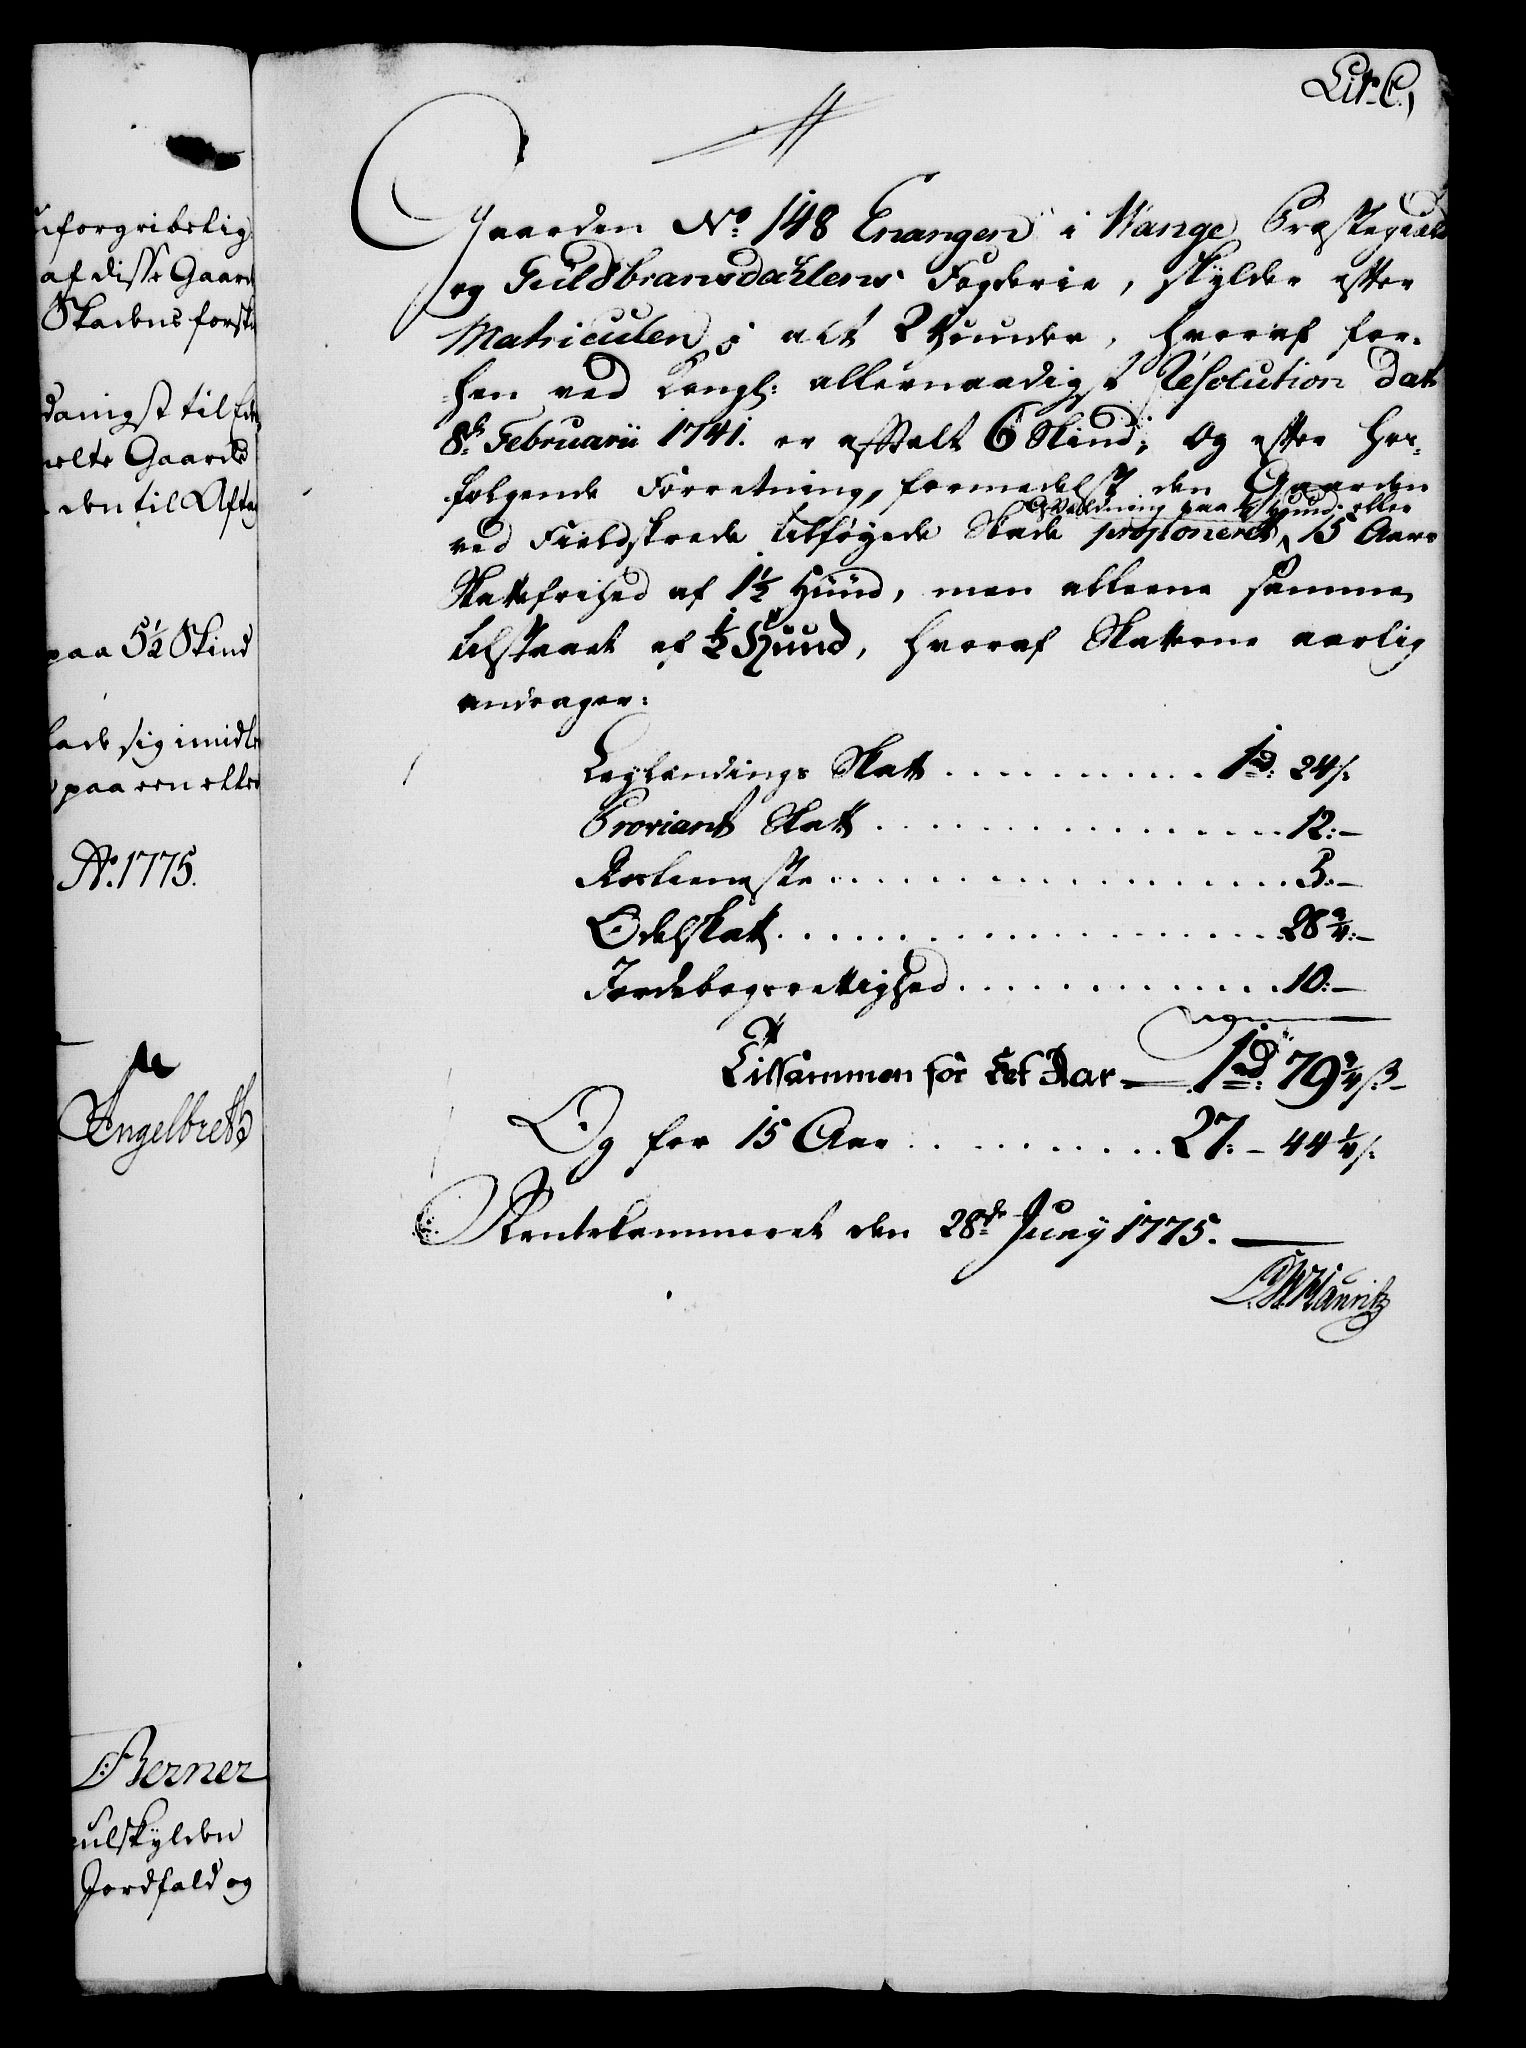 uforgribelig
af disse Gaard
Skadens forsk
danigst til
melte Gaarde
den til Aftag
paa 5½ Skind
lade sig imidle
paa een eller
Ao. 1775.
Engelbreth
Berner
ulskylden
Jordfald og
Lit. C,
Gaarden No. 148 Enangen i Wange Præstegield
og Guldbransdahlens Fogderie, skylder efter
Matriculen i alt 2 Hunder, hvoraf for-
hen ved Kongl: allernaadigst Resolution Dat
8de Februarii 1741. er afstalt 6 Skind; og efter her-
følgende Forretning, formedelst den Gaarden
Afældning paa ½ Hund: eller
ved Fieldskrede tilføyede Skade proponeret, 15 Aars
Skattefrihed af 1½ Hünd, men alleene samme
tilstaaet af ½ Hund, hvoraf Skatterne aarlig
andrager:
Leylændings Skatt . . . . . . . . . . . 1 rd: 24 s:
Proviant Skatt . . . . . . . . . . . . . . . 12: —
Rostieneste . . . . . . . . . . . . . . . . 5: —
Odelskatt . . . . . . . . . . . . . . . . . 28 3/4: —
Jordebogsrettighed . . . . . . . . . . . . 10: —
Tilsammen for Eet Aar — 1 rd: 79 3/4 ß: —
Og for 15 Aar . . . . . . . . . . 27: — 44 1/4 s:
Rentekammeret den 28de Juny 1775. —
Mauritz